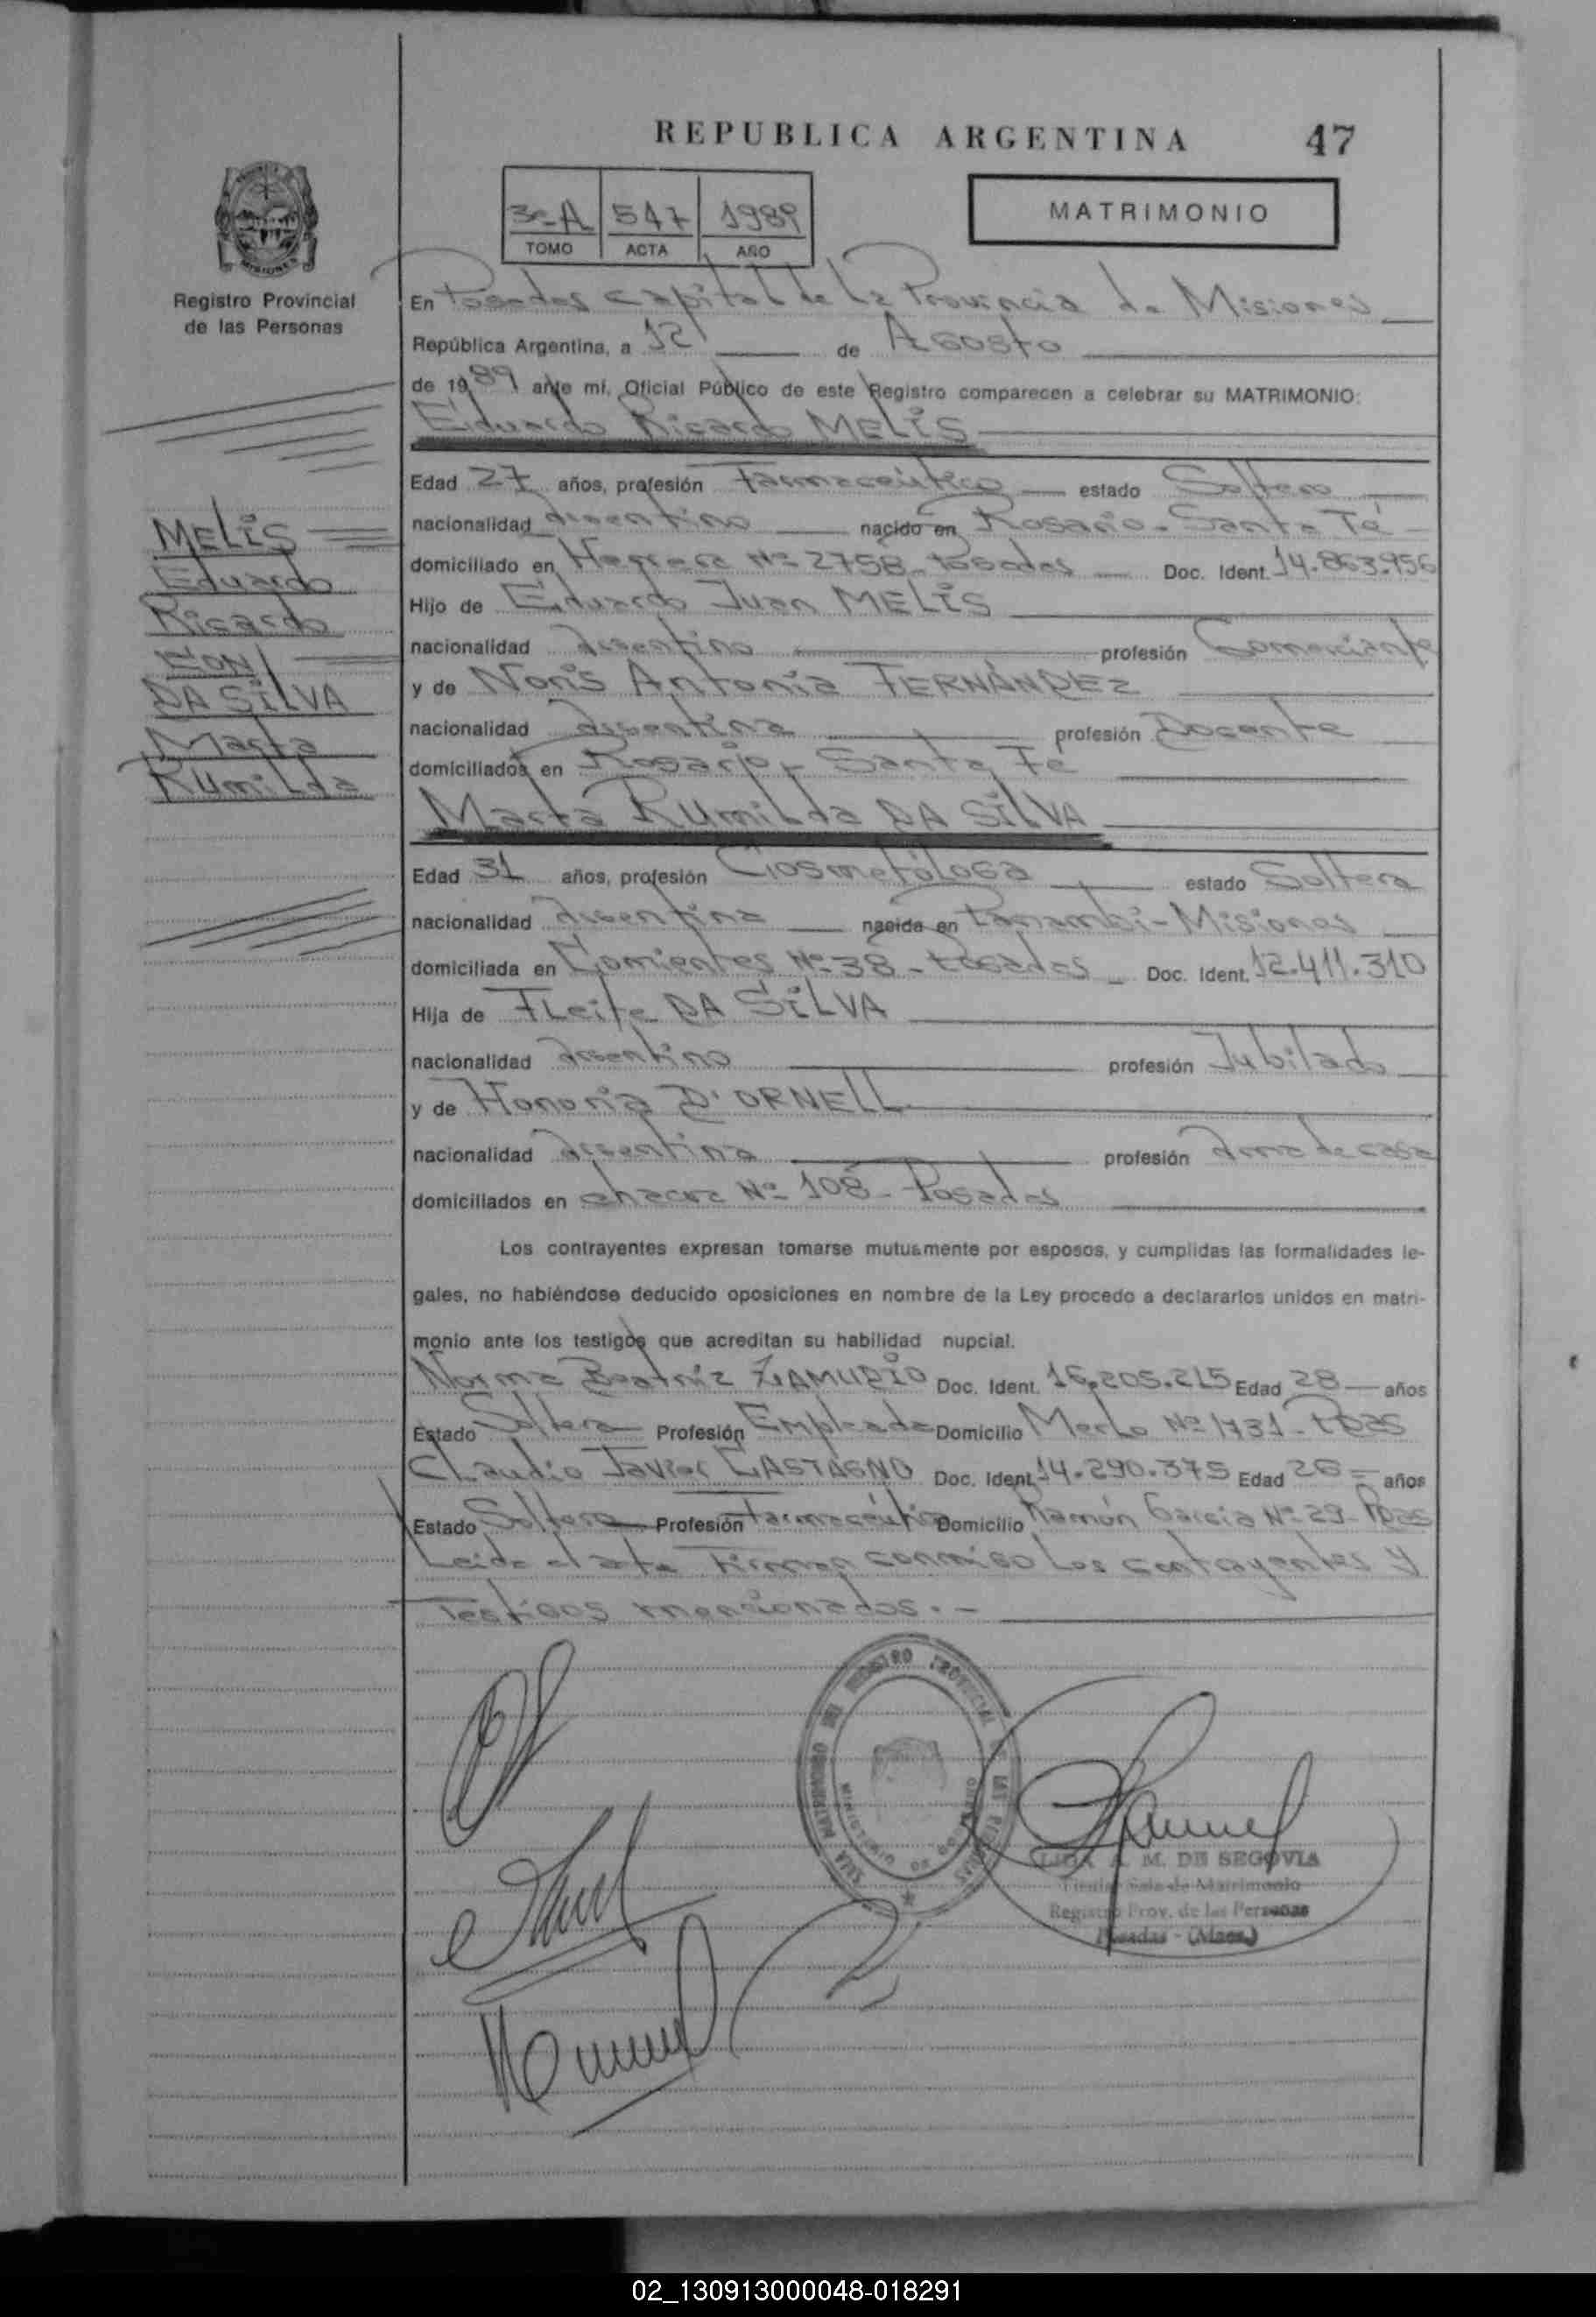 REPUBLICA ARGENTINA 47
3º-A 547 1989
TOMO ACTA AÑO
MATRIMONIO
MISIONES
Registro Provincial
de las Personas
En Posadas capital de la Provincia de Misiones
República Argentina, a 12 de Agosto
de 1989 ante mí, Oficial Público de este Registro comparecen a celebrar su MATRIMONIO:
Eduardo Ricardo MELIS
Edad 27 años, profesión Farmacéutico estado Soltero
nacionalidad argentino nacido en Rosario-Santa Fé
domiciliado en Herrera Nº 2758-Posadas Doc. Ident. 14.863.956
Hijo de Eduardo Juan MELIS
nacionalidad argentino profesión Comerciante
y de Noris Antonia FERNÁNDEZ
nacionalidad argentina profesión Docente
domiciliados en Rosario-Santa Fé
Marta Rumilda DA SILVA
MELIS
Eduardo
Ricardo
CON
DA SILVA
Marta
Rumilda
Edad 31 años, profesión Cosmetóloga estado Soltera
nacionalidad argentina nacida en Panambí-Misiones
domiciliada en Corrientes Nº 38-Posadas Doc. Ident. 12.411.310
Hija de FLeite DA SILVA
nacionalidad argentino profesión Jubilado
y de Honoria D'ORNELL
nacionalidad argentina profesión Ama de casa
domiciliados en chacra Nº 108-Posadas
Los contrayentes expresan tomarse mutuamente por esposos, y cumplidas las formalidades le-
gales, no habiéndose deducido oposiciones en nombre de la Ley procedo a declararlos unidos en matri-
monio ante los testigos que acreditan su habilidad nupcial.
Norma Beatriz ZAMUDIO Doc. Ident. 16.205.215 Edad 28 años
Estado Soltera Profesión Empleada Domicilio Merlo Nº 1731-Pdas
Claudio Javier CASTAGNO Doc. Ident. 14.290.375 Edad 26 años
Estado Soltero Profesión Farmacéutico Domicilio Ramón García Nº 29-Pdas
Leída el acta Firman conmigo los contrayentes y
Testigos mencionados.-
REGISTRO PROVINCIAL DE LAS PERSONAS
SALA MATRIMONIO
MINISTERIO DE GOBIERNO
LIGIA A. M. DE SEGOVIA
Titular Sala de Matrimonio
Registro Prov. de las Personas
Posadas - (Mnes.)
02_130913000048-018291